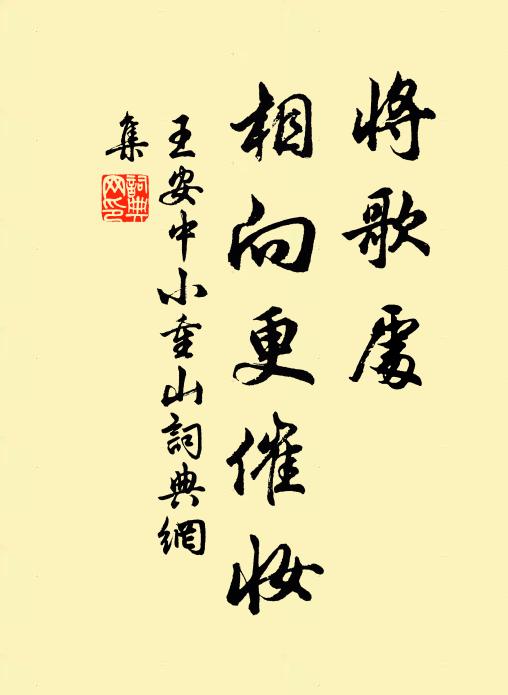 將歌處
相向更催妝
王安中小重山詞典網
集
詞典网印